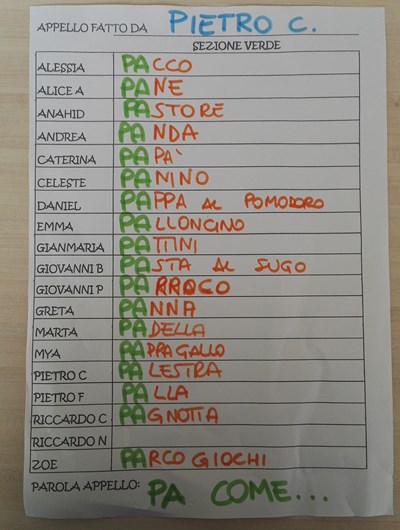 APPELLO FATTO DA PIETRO C.
SEZIONE VERDE
ALESSIA PACCO
ALICE A PANE
ANAHID PASTORE
ANDREA PANDA
CATERINA PAPA'
CELESTE PANINO
DANIEL PAPPA AL POMODORO
EMMA PALLONCINO
GIANMARIA PATTINI
GIOVANNI B PASTA AL SUGO
GIOVANNI P PARROCO
GRETA PANNA
MARTA PADELLA
MYA PAPPAGALLO
PIETRO C PALESTRA
PIETRO F PALLA
RICCARDO C PAGNOTTA
RICCARDO N
ZOE PARCO GIOCHI
PAROLA APPELLO: PA COME...